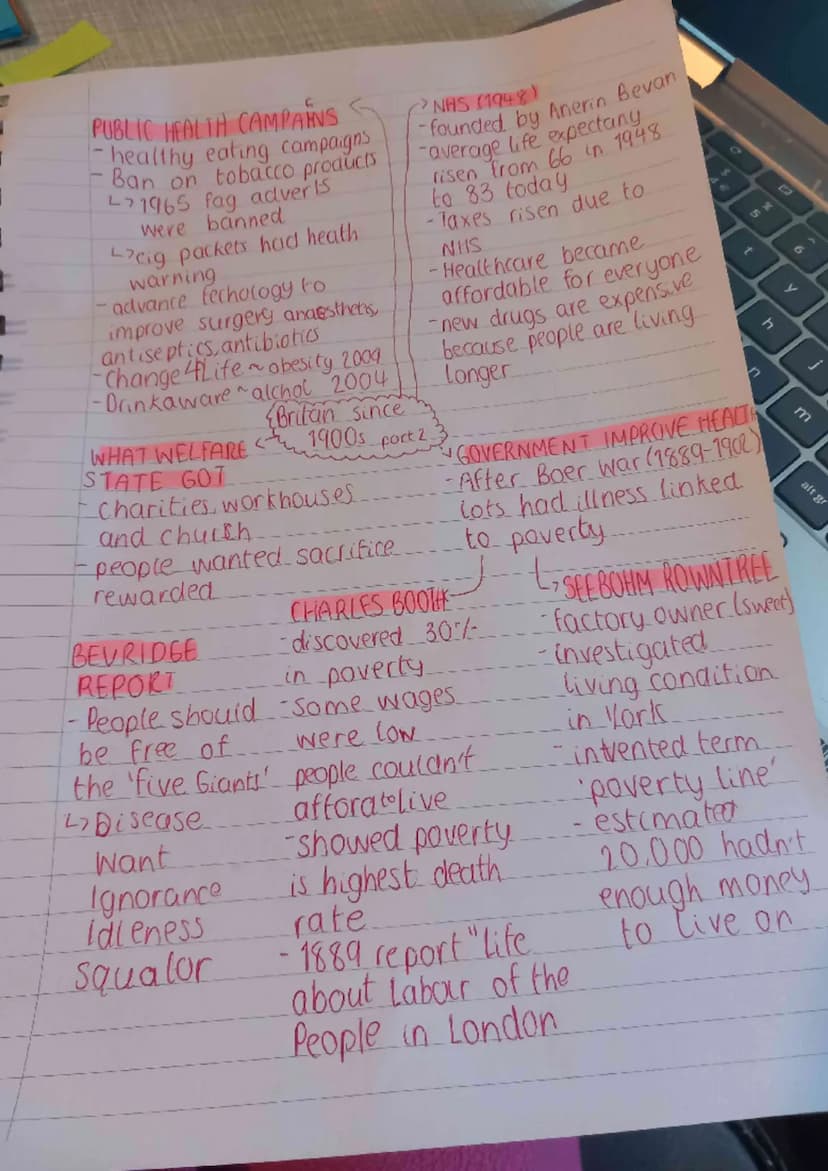 PUBLIC HEALTH CAMPAINS
G
- healthy eating campaigns
- Ban on tobacco products
↳ 1965 fag adverts
were banned
↳ cig packets had heath
warning
- advance techology to
improve surgery anaesthetics,
antiseptics, antibiotics
- Change 4Life ~ obesity 2009
- Drinkaware ~ alchol 2004
NHS (1948)
- founded by Anerin Bevan
- average life expectany
risen from 66 in 1948
to 83 today
- Taxes risen due to
NHS
- Healthcare became
affordable for everyone
- new drugs are expensive
because people are living
longer
Britan since
1900s part 2
WHAT WELFARE
STATE GOT
- charities, workhouses
and church
- people wanted sacrifice
rewarded
GOVERNMENT IMPROVE HEALTH
- After Boer War (1889-1902)
lots had illness linked
to poverty
BEVRIDGE
REPORT
- People should
be free of
the 'five Giants'
↳ Disease
Want
Ignorance
idleness
squalor
CHARLES BOOTH
- discovered 30%
in poverty
- some wages
were low
people couldn't
afford to live
- showed poverty
is highest death
rate
- 1889 report "life
about Labour of the
People in London
↳ SEEBOHM ROWNTREE
- factory owner (sweet)
- investigated
living condition
in York
- invented term
'poverty line'
- estimated
20,000 hadn't
enough money
to live on
alt gr